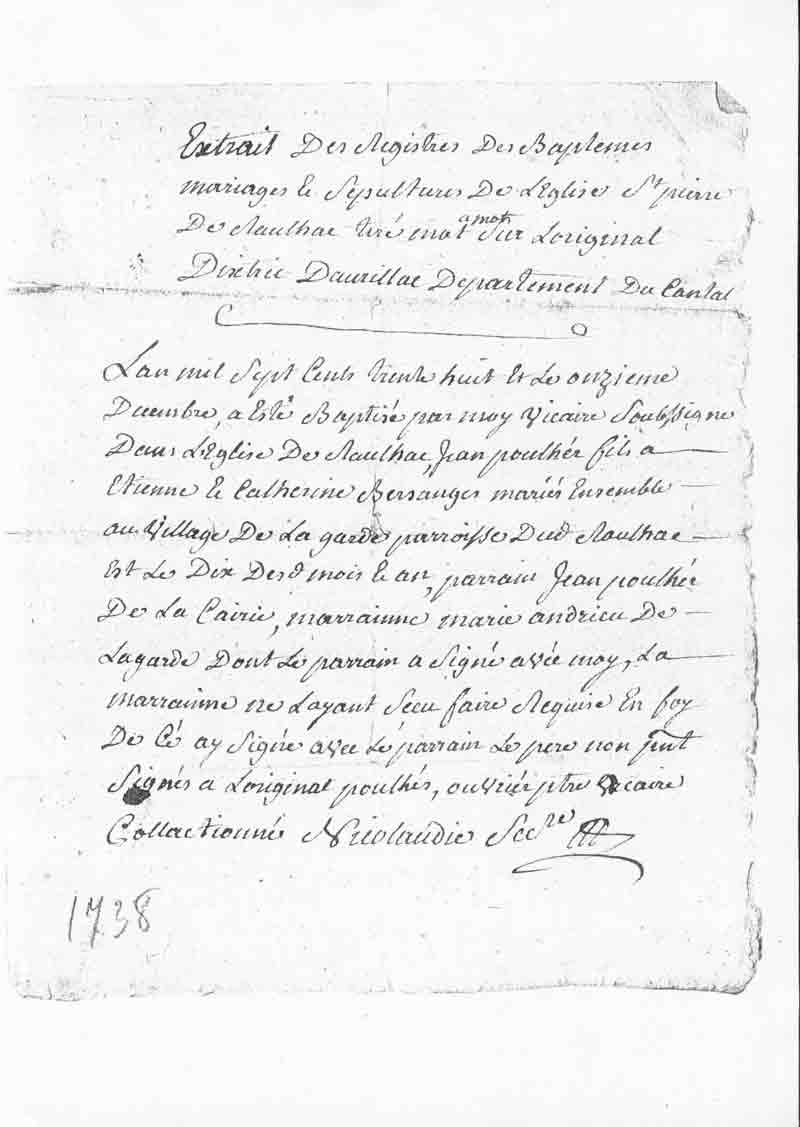 Extrait Des Registres Des Baptemes
mariages & Sepultures De LEglise St pierre
De Raulhac tiré mot a mot Sur Loriginal
Distric Daurillac Departement Du Cantal
Lan mil Sept Cents trente huit Et Le onzieme
Decembre, a Esté Baptisé par moy Vicaire Soubssigne
Dans LEglise De Raulhac, Jean poulhés fils a
Etienne & Catherine Bersanges mariés Ensemble
au Village De La garde parroisse Dud Raulhac
Est Le Dix Desd mois & an, parrain Jean poulhés
De La Cairie, marrainne marie andrieu De
Lagarde Dont Le parrain a Signé avéc moy, La
marrainne ne Layant Sceu faire Requise En foy
De Cé ay Signé avec Lé parrain Le pere non pnt
Signés a Loriginal poulhés, ouvriée ptre Vicaire
Collactionné Nicolaudie Secre
1738